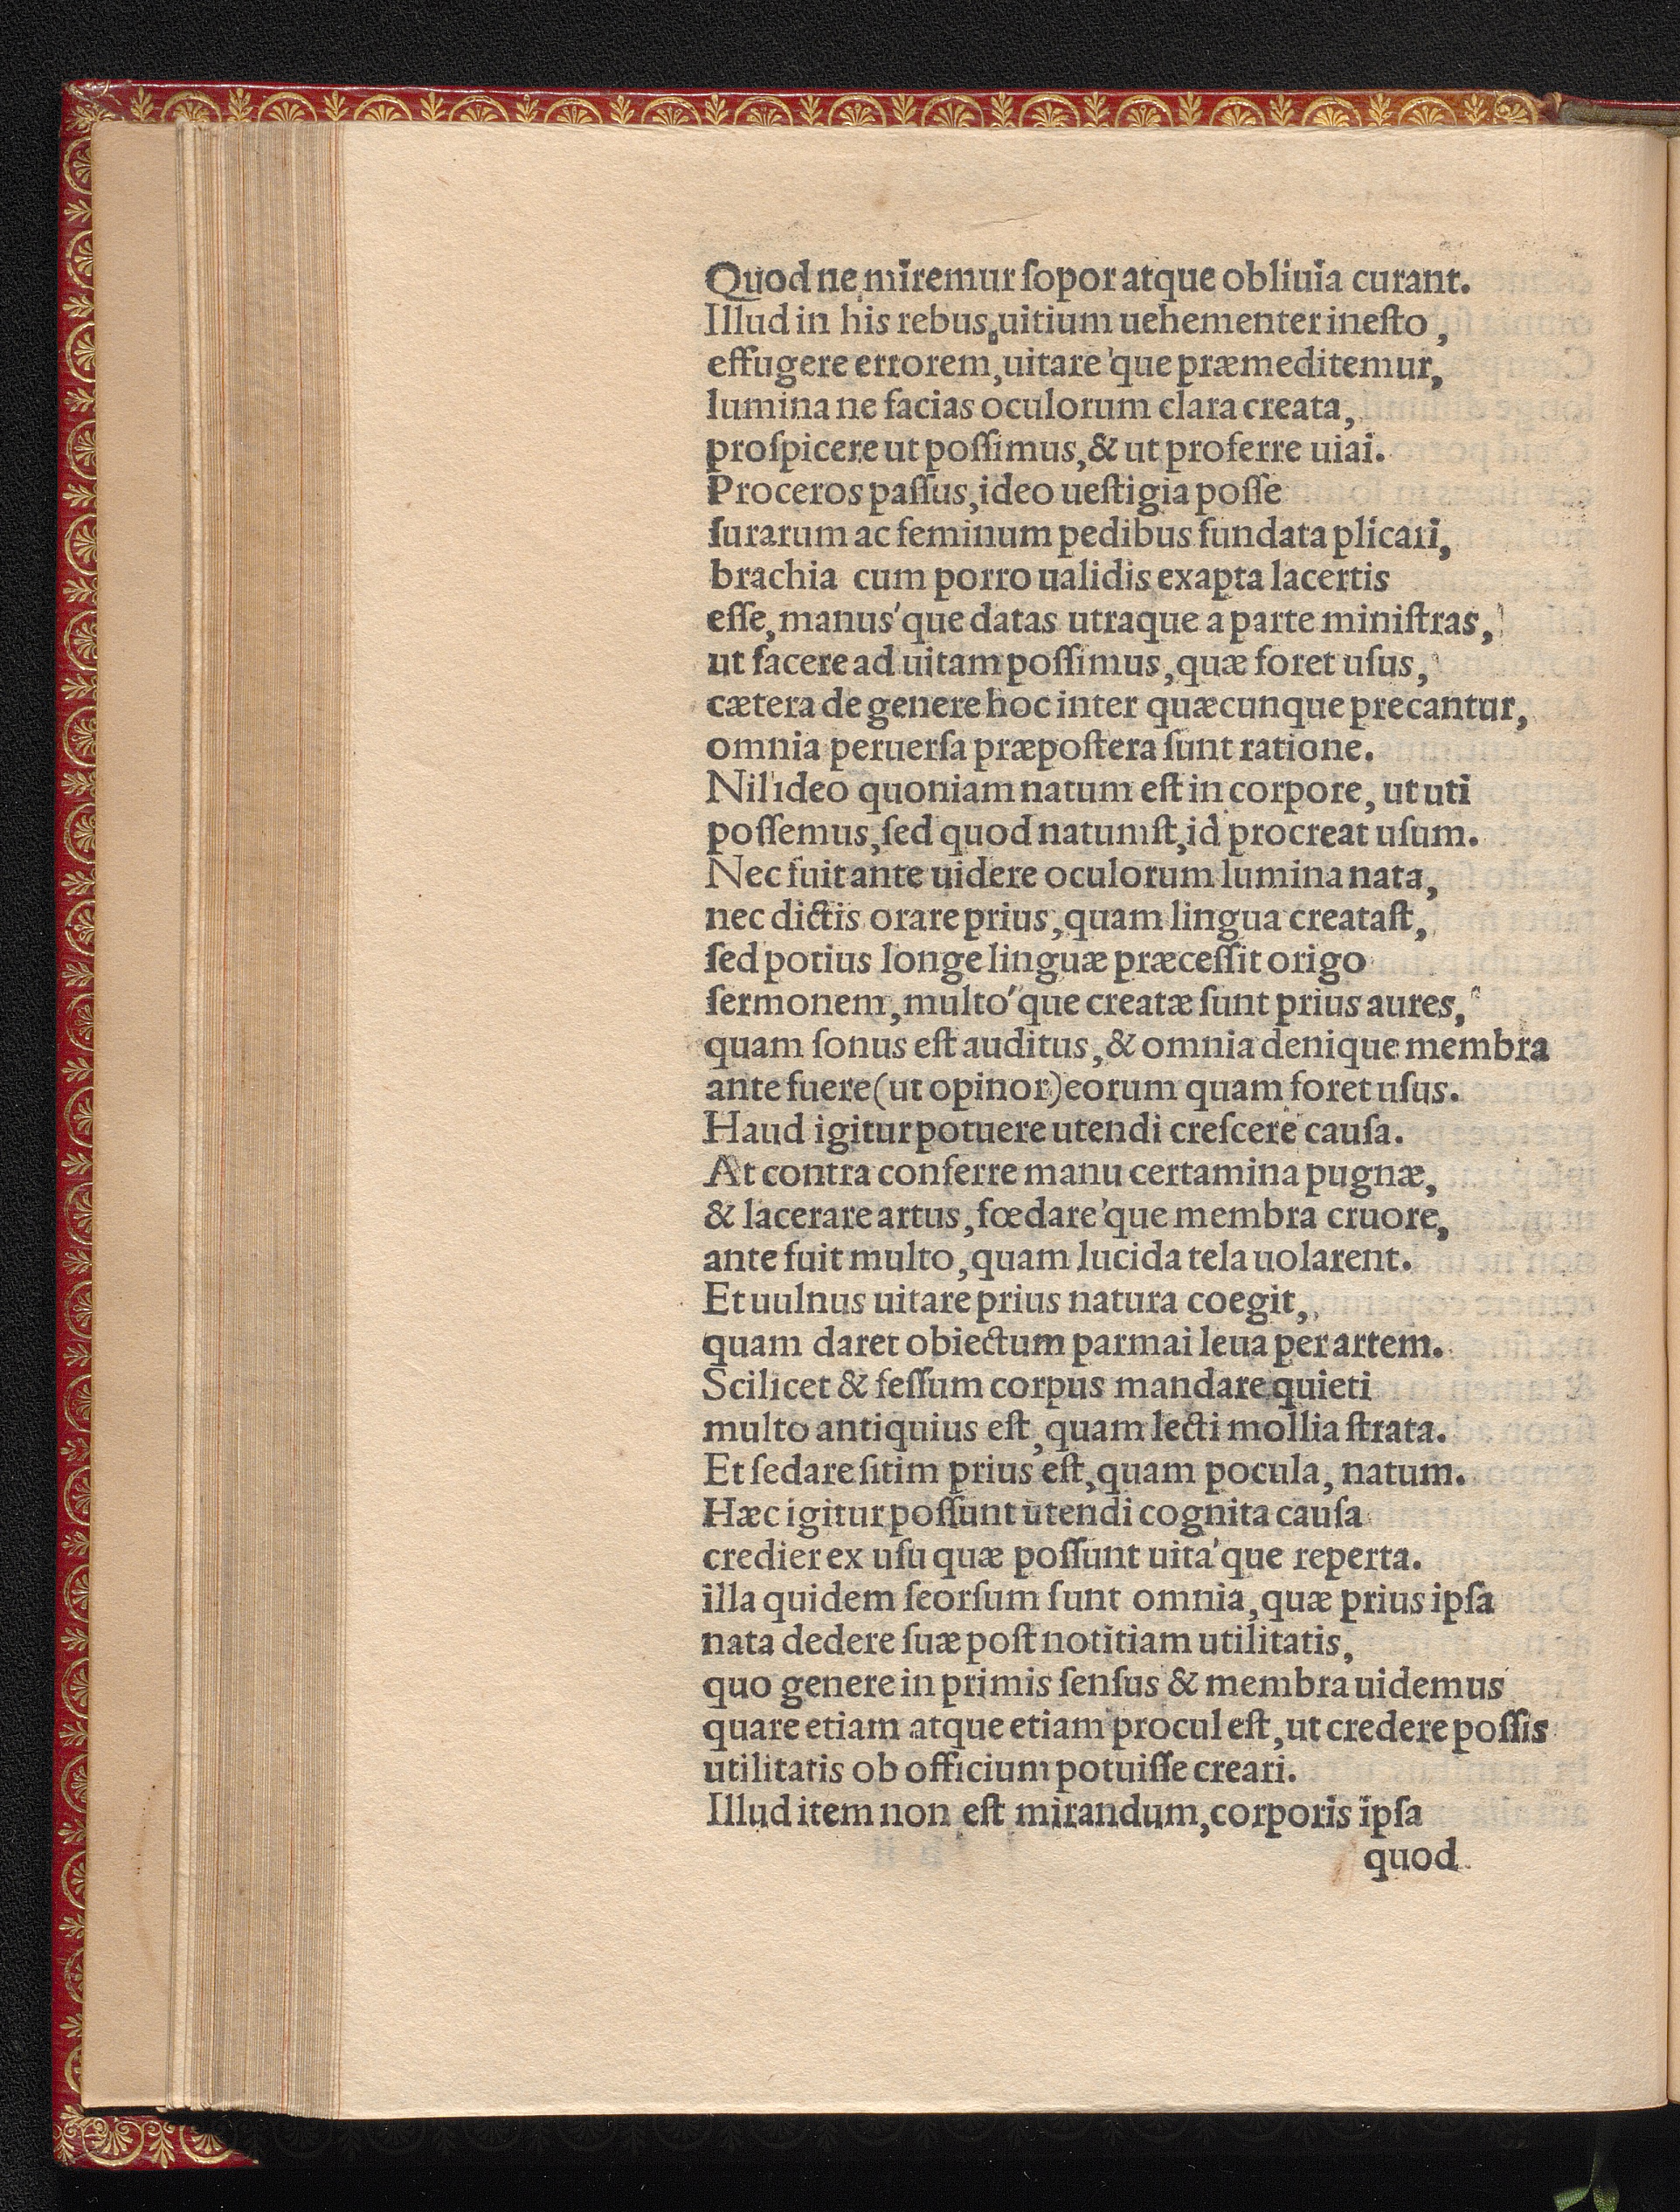 Quod ne miremur ſopor atque obliuia curant.
Illud in his rebus, uitium uehementer ineſto,
effugere errorem, uitare'que præmeditemur,
lumina ne facias oculorum clara creata,
proſpicere ut poſſimus, & ut proferre uiai.
Proceros paſſus, ideo ueſtigia poſſe
ſurarum ac feminum pedibus fundata plicari,
brachia cum porro ualidis exapta lacertis
eſſe, manus'que datas utraque a parte miniſtras,
ut facere ad uitam poſſimus, quæ foret uſus,
cætera de genere hoc inter quæcunque precantur,
omnia peruerſa præpoſtera ſunt ratione.
Nil ideo quoniam natum eſt in corpore, ut uti
poſſemus, ſed quod natumſt, id procreat uſum.
Nec fuit ante uidere oculorum lumina nata,
nec dictis orare prius, quam lingua creataſt,
ſed potius longe linguæ præceſſit origo
ſermonem, multo'que creatæ ſunt prius aures,
quam ſonus eſt auditus, & omnia denique membra
ante fuere (ut opinor) eorum quam foret uſus.
Haud igitur potuere utendi creſcere cauſa.
At contra conferre manu certamina pugnæ,
& lacerare artus, fœdare'que membra cruore,
ante fuit multo, quam lucida tela uolarent.
Et uulnus uitare prius natura coegit,
quam daret obiectum parmai leua per artem.
Scilicet & feſſum corpus mandare quieti
multo antiquius eſt, quam lecti mollia ſtrata.
Et ſedare ſitim prius eſt, quam pocula, natum.
Hæc igitur poſſunt utendi cognita cauſa
credier ex uſu quæ poſſunt uita'que reperta.
illa quidem ſeorſum ſunt omnia, quæ prius ipſa
nata dedere ſuæ poſt notitiam utilitatis,
quo genere in primis ſenſus & membra uidemus
quare etiam atque etiam procul eſt, ut credere poſſis
utilitatis ob officium potuiſſe creari.
Illud item non eſt mirandum, corporis ipſa
quod